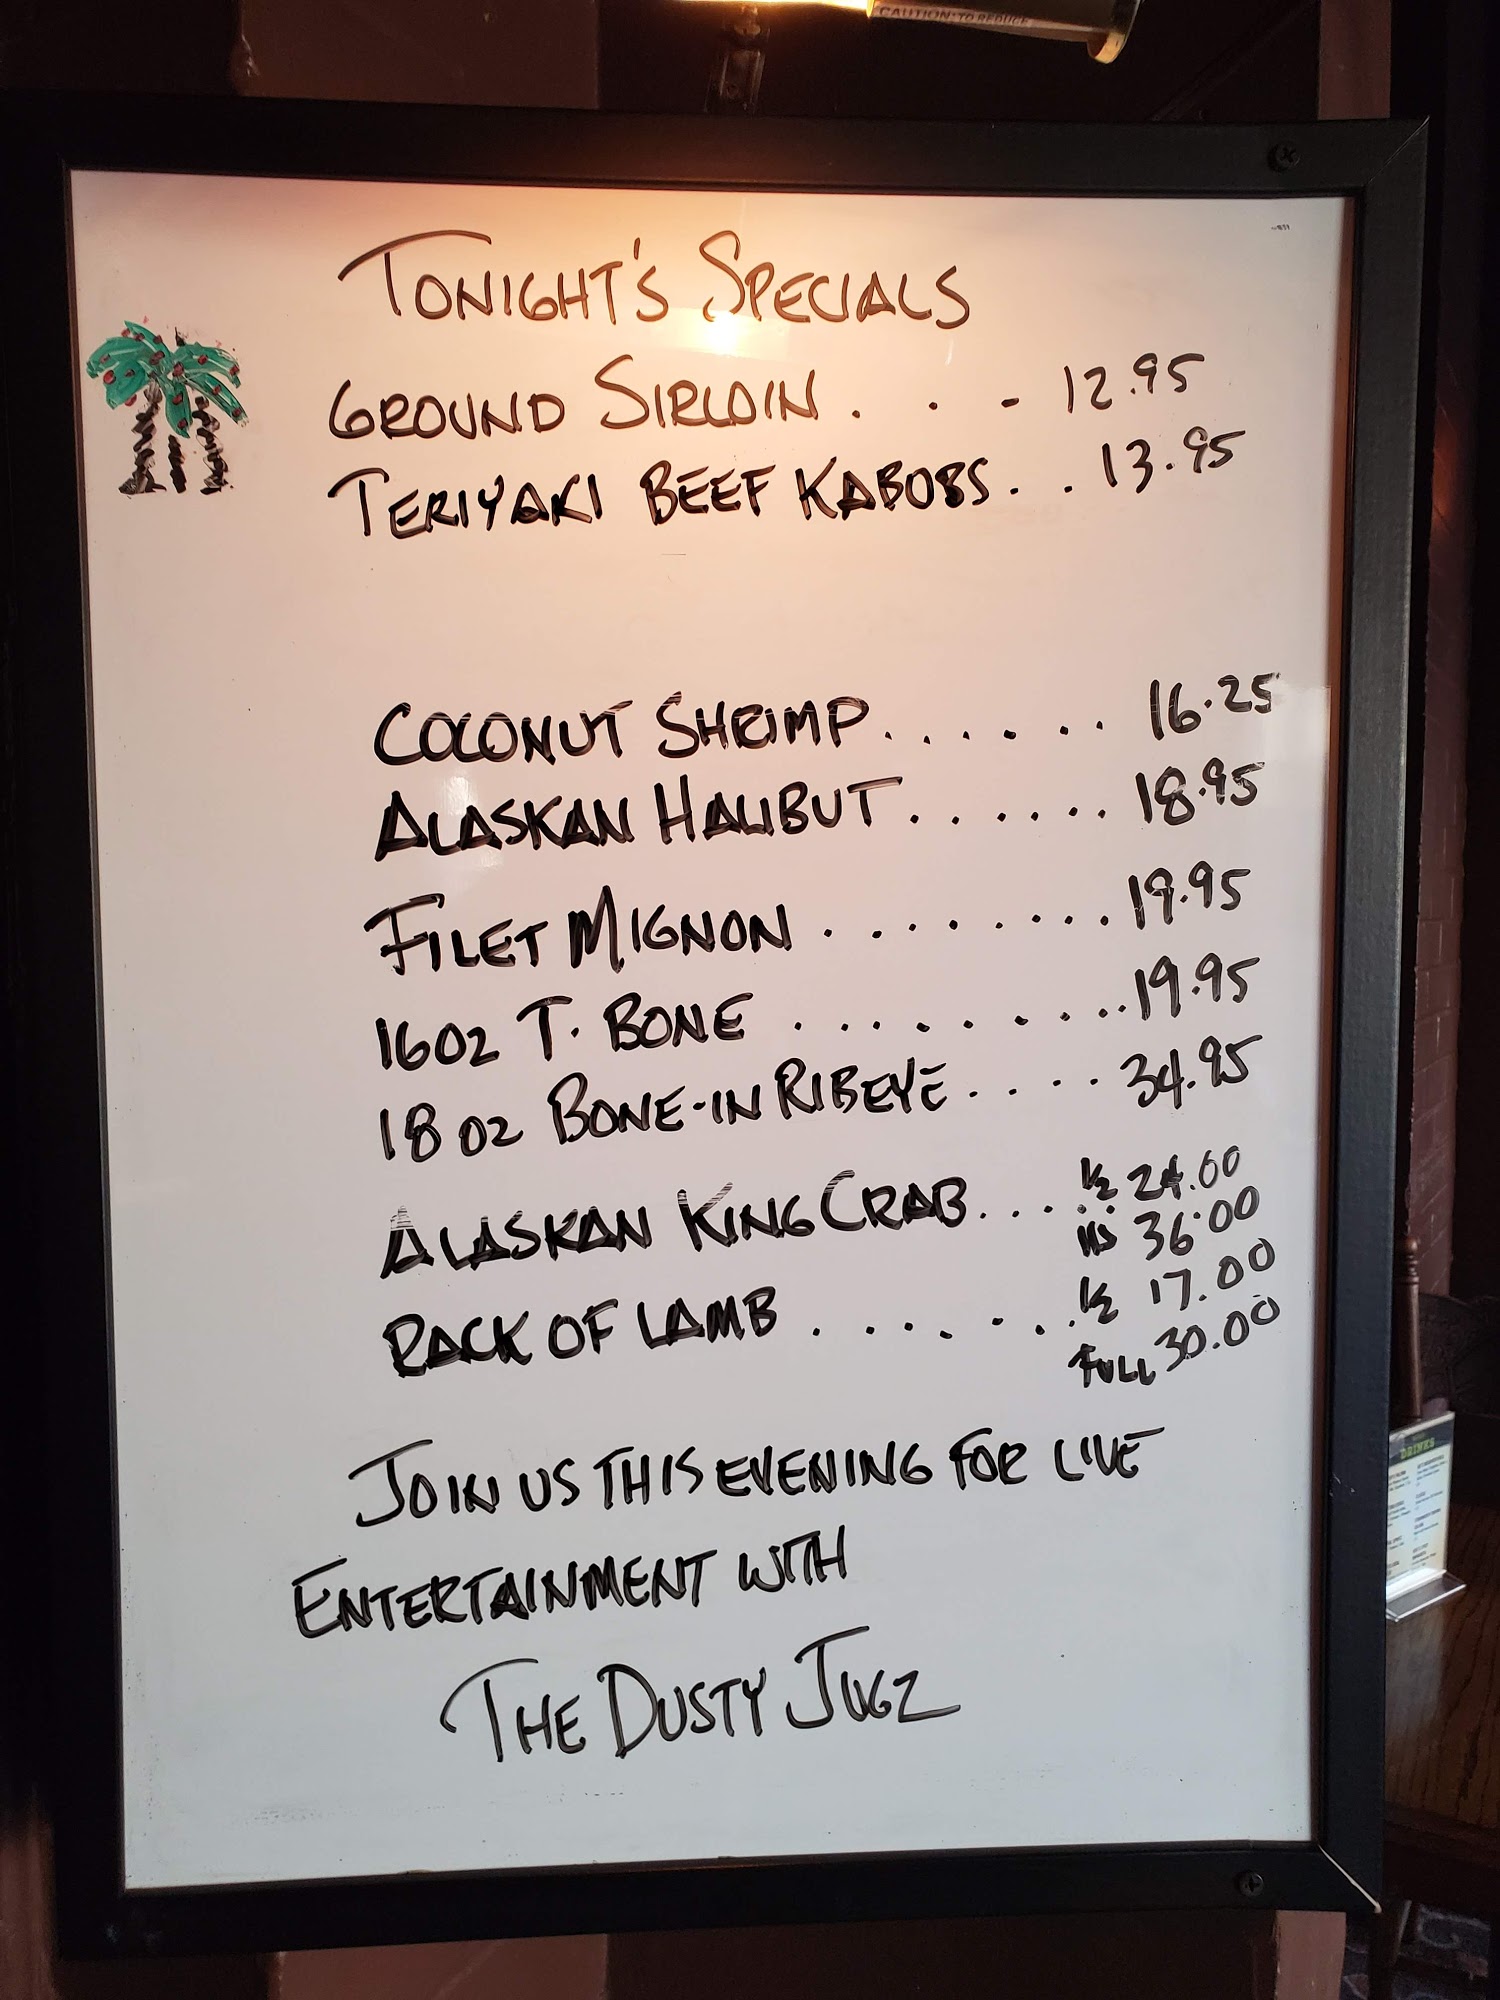 CAUTION: TO REDUCE
TONIGHT'S SPECIALS
GROUND SIRLOIN . . - 12.95
TERIYAKI BEEF KABOBS . . 13.95
COCONUT SHRIMP . . . . . . 16.25
ALASKAN HALIBUT . . . . . . 18.95
FILET MIGNON . . . . . . . . 19.95
16OZ T. BONE . . . . . . . . . 19.95
18 OZ BONE-IN RIBEYE . . . . 34.95
ALASKAN KING CRAB . . . . . 1/2 24.00
36.00
RACK OF LAMB . . . . . . . 1/2 17.00
FULL 30.00
JOIN US THIS EVENING FOR LIVE
ENTERTAINMENT WITH
THE DUSTY JUGZ
DRINKS